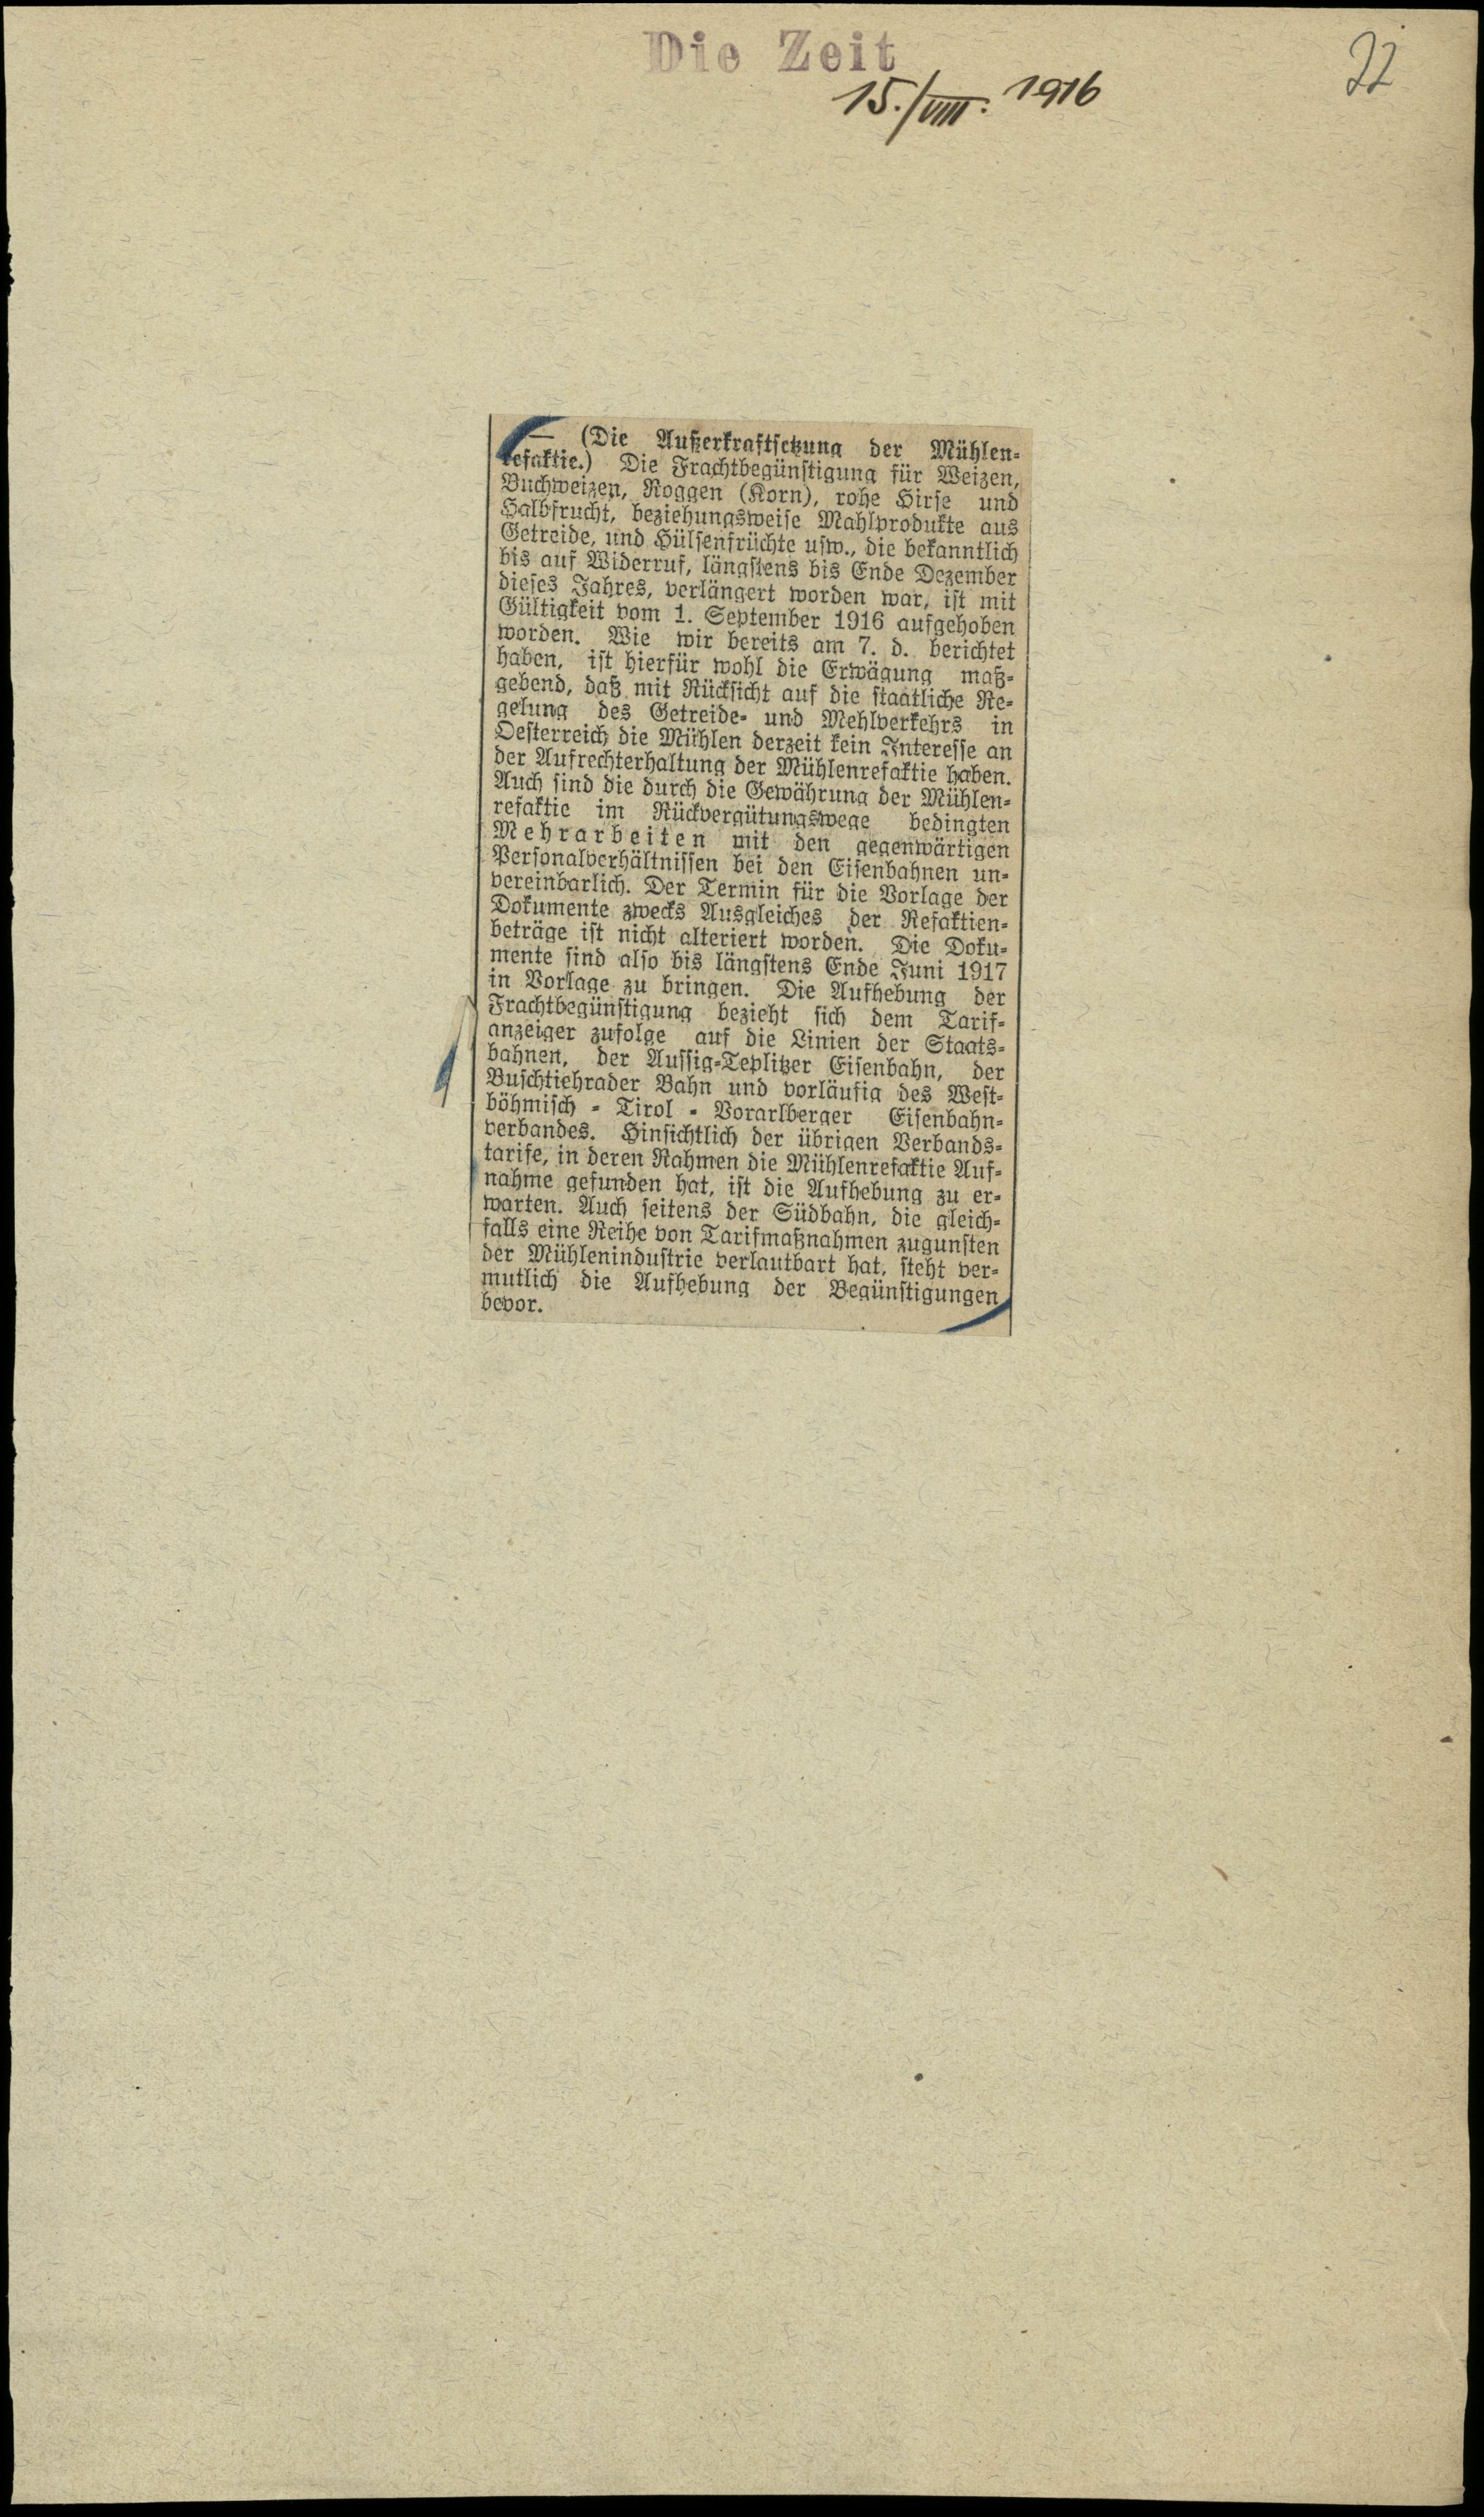 Die Zeit
22
15./VIII. 1916
— (Die Außerkraftsetzung der Mühlen-
refaktie.) Die Frachtbegünstigung für Weizen,
Buchweizen, Roggen (Korn), rohe Hirse und
Halbfrucht, beziehungsweise Mahlprodukte aus
Getreide, und Hülsenfrüchte usw., die bekanntlich
bis auf Widerruf, längstens bis Ende Dezember
dieses Jahres, verlängert worden war, ist mit
Gültigkeit vom 1. September 1916 aufgehoben
worden. Wie wir bereits am 7. d. berichtet
haben, ist hierfür wohl die Erwägung maß-
gebend, daß mit Rücksicht auf die staatliche Re-
gelung des Getreide- und Mehlverkehrs in
Oesterreich die Mühlen derzeit kein Interesse an
der Aufrechterhaltung der Mühlenrefaktie haben.
Auch sind die durch die Gewährung der Mühlen-
refaktie im Rückvergütungswege bedingten
Mehrarbeiten mit den gegenwärtigen
Personalverhältnissen bei den Eisenbahnen un-
vereinbarlich. Der Termin für die Vorlage der
Dokumente zwecks Ausgleiches der Refaktien-
beträge ist nicht alteriert worden. Die Doku-
mente sind also bis längstens Ende Juni 1917
in Vorlage zu bringen. Die Aufhebung der
Frachtbegünstigung bezieht sich dem Tarif-
anzeiger zufolge auf die Linien der Staats-
bahnen, der Aussig-Teplitzer Eisenbahn, der
Buschtiehrader Bahn und vorläufig des West-
böhmisch - Tirol - Vorarlberger Eisenbahn-
verbandes. Hinsichtlich der übrigen Verbands-
tarife, in deren Rahmen die Mühlenrefaktie Auf-
nahme gefunden hat, ist die Aufhebung zu er-
warten. Auch seitens der Südbahn, die gleich-
falls eine Reihe von Tarifmaßnahmen zugunsten
der Mühlenindustrie verlautbart hat, steht ver-
mutlich die Aufhebung der Begünstigungen
bevor.